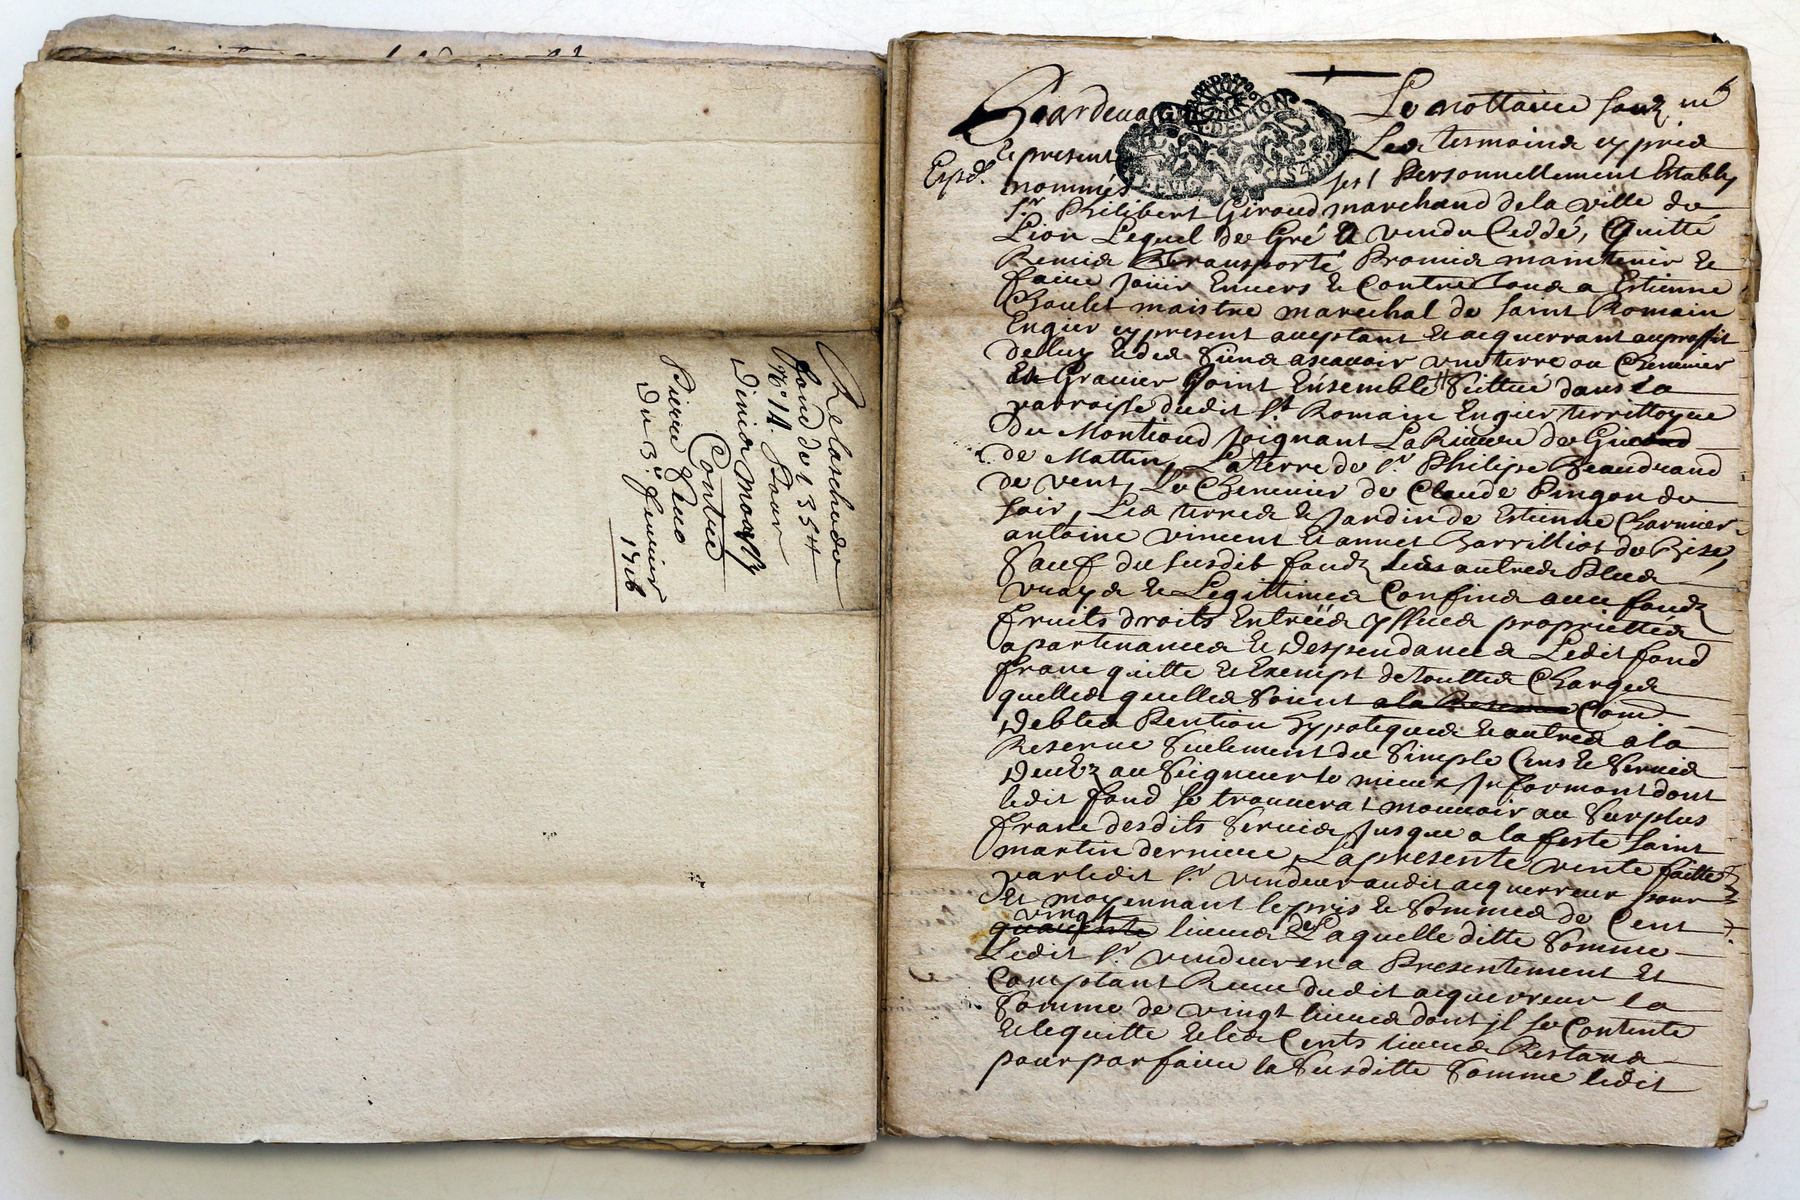 Relaschede
fond de 1354
N° 14. Pour
Denis
Contre
Pierre
Du 3e feurier
1716
Pardeua Le nottaire souz né
Expd. le present Les tesmoins cy pries
nommés fust Personnellement Estably
sr. Philibert Giroud marchand de la ville de
Lion Lequel de Gré A vendu Ceddé, Quitté
Remis & transporté, Promis maintenir &
faire jouir Enuers & Contre tous a Estienne
Choulet maistre marechal de saint Romain
Engier cy present aceptant & acquerrant au proffit
de luy & des siens ascauoir une terre ou Chenuier
et Grauier Joint Ensemble scittué dans la
parroisse dudit st Romain Engier territtoyre
du Montioud joignant La Riuiere de Gier
de Mattin, La terre de sr Philipe Beaudrand
de vent, Le Chenuier de Claude Pingon de
soir, Les terres & Jardin de Estienne Charnier
antoine vincent & annet Barrilliot de Bize,
Sauf du susdit fondz ses autres Plus
vrays & Legittimes Confins auec fondz
fruits droits Entréés yssues propriettés
apartenances & Despendances Ledit fond
franc quitte & Exempt de touttes Charges
quelles quelles soient a la Reserue Comé
Debtes Pention hypoteques & autres a la
Reserue seulement du simple Cens & seruis
Deubz au seigneur le mieux Informant dont
ledit fond se trouuerat mouuoir au surplus
franc desdits seruis jusque a la feste saint
martin derniere, La presente vente faitte
par ledit sr vendeur audit acquerreur pour
Et moyennant le pris & sommes de Cent
vingt
quarente liures de Laquelle ditte somme
Ledit sr vendeur en a Presentement Et
Comptant Receu dudit acquerreur la
somme de vingt liures dont jl se Contente
& le quitte & les Cents liures Restans
pour par faire la susditte somme ledit